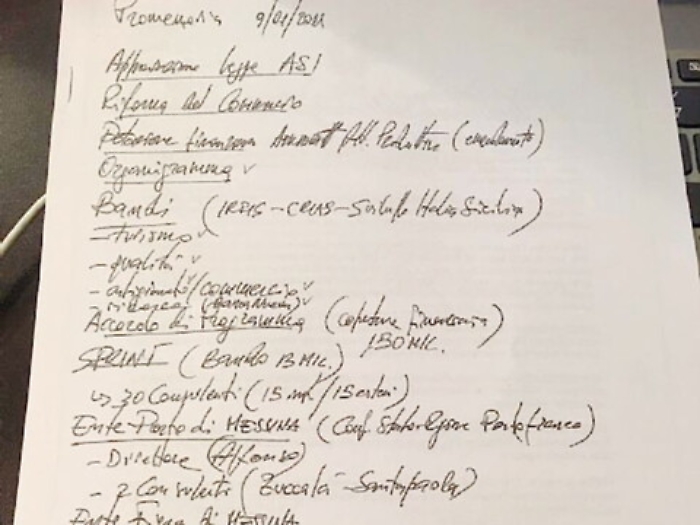 Promemoria 9/01/2011
Approvazione legge ASI
Riforma del Commercio
Dotazione finanziaria Att. Produttive (emendamento)
Organigramma ✓
Bandi (IRFIS-CRIAS-Sviluppo Italia Sicilia)
- turismo ✓
- qualità ✓
- artigianato/commercio ✓
- ricerca ✓
Accordo di Programma (copertura finanziaria)
130 MK.
SPRINT (Bando 13 MK.)
↳ 30 Consulenti (15 int/15 esterni)
Ente Porto di MESSINA (Conf. Stato Regione Portofranco)
- Direttore (Alfonso)
- 2 Consulenti (Zuccalà-Santapaola)
Ente Fiera di MESSINA